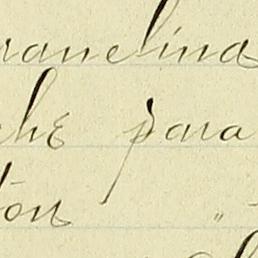 ranelina
che para
ton "